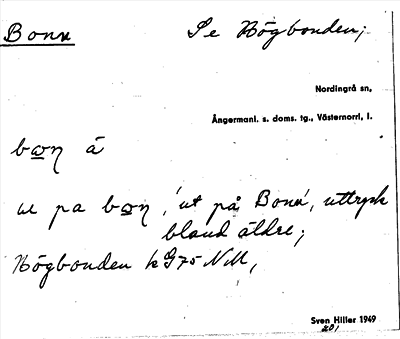 Bonn Se Högbonden;
Nordingrå sn,
Ångermanl. s. doms. tg., Västernorrl. l.
bɷn̥ á
ut pa bɷn̥, 'ut på Bonn', uttryck
bland äldre;
Högbonden k G75 NM,
Sven Hiller 1949